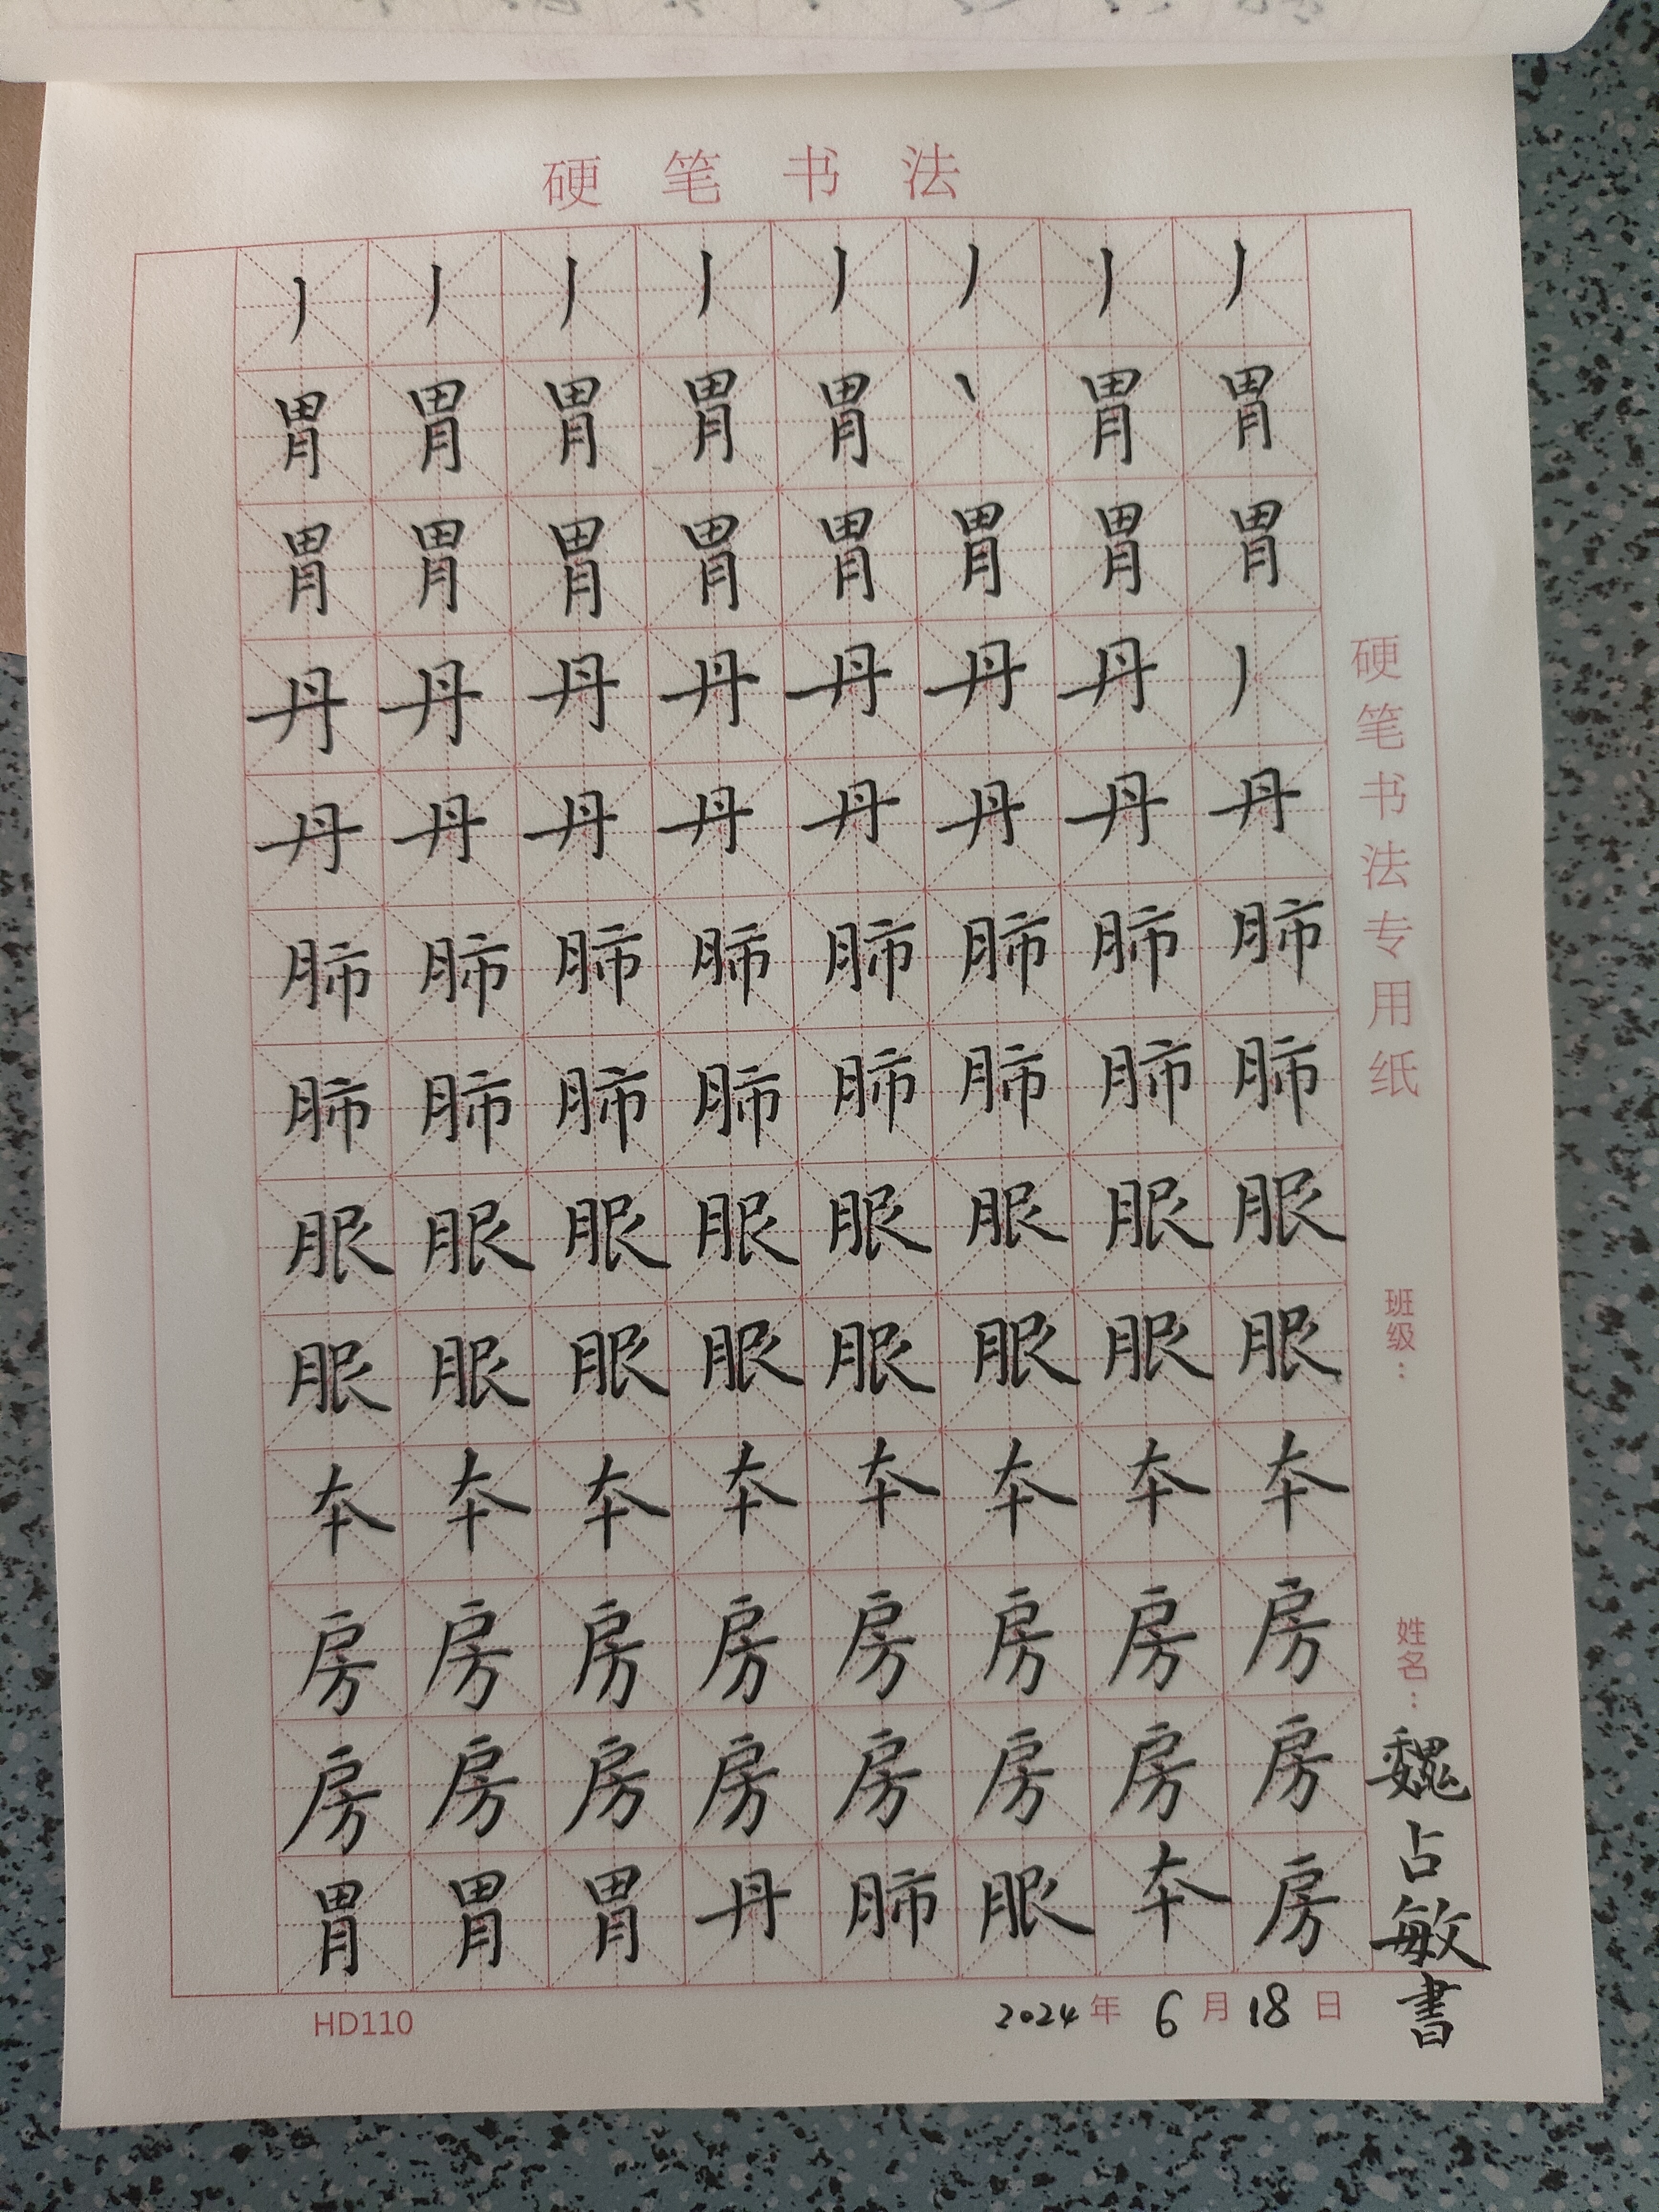 硬笔书法
丿丿丿丿丿丿丿丿
胃胃胃胃胃丶胃胃
胃胃胃胃胃胃胃胃
丹丹丹丹丹丹丹丿
丹丹丹丹丹丹丹丹
肺肺肺肺肺肺肺肺
肺肺肺肺肺肺肺肺
服服服服服服服服
服服服服服服服服
本本本本本本本本
房房房房房房房房
房房房房房房房房
胃胃胃丹肺服本房
硬笔书法专用纸
班级：
姓名：魏占敏書
HD110
2024年6月18日